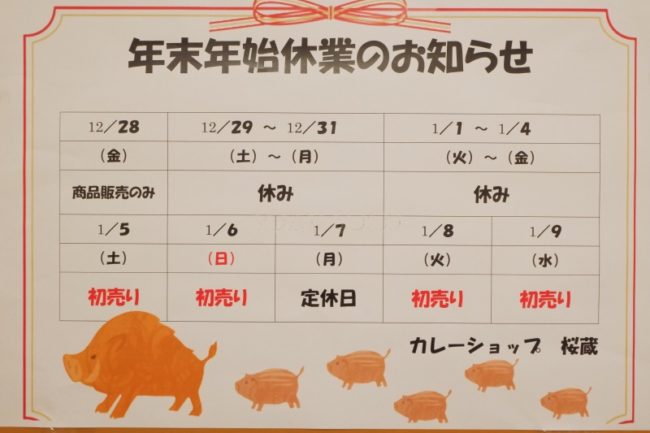 年末年始休業のお知らせ
12/28 12/29 ～ 12/31 1/1 ～ 1/4
（金） （土）～（月） （火）～（金）
商品販売のみ 休み 休み
1/5 1/6 1/7 1/8 1/9
（土） （日） （月） （火） （水）
初売り 初売り 定休日 初売り 初売り
カレーショップ 桜蔵